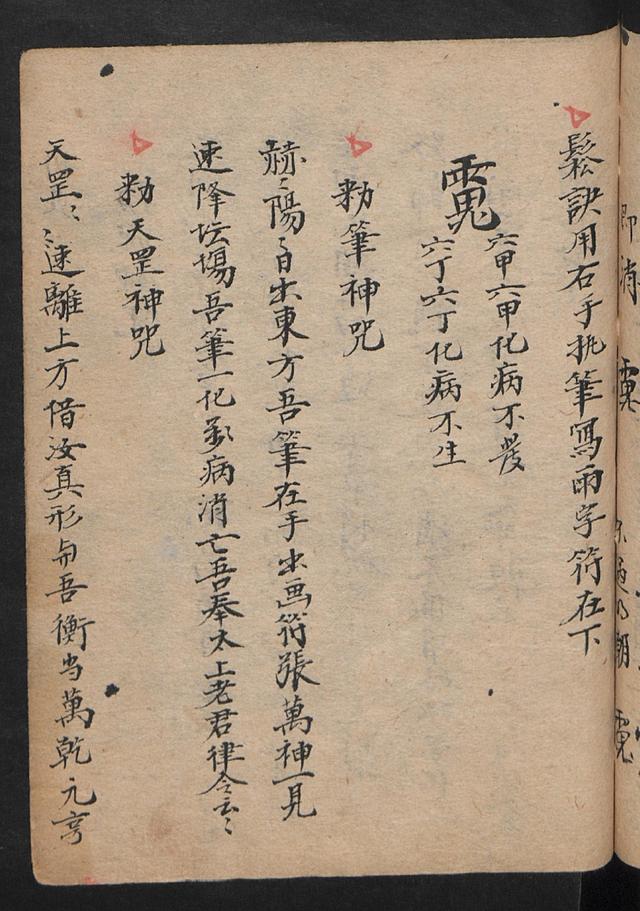 鬆訣用右手执筆寫雨字符在下
六甲六甲化病不發
六丁六丁化病不生
勑筆神咒
赫〻陽〻日出東方吾筆在手出画符張萬神一見
速降坛塲吾筆一化萬病消亡吾奉太上老君律令云〻
勑天罡神咒
天罡〻〻速離上方借汝真形与吾衡当萬乾元亨